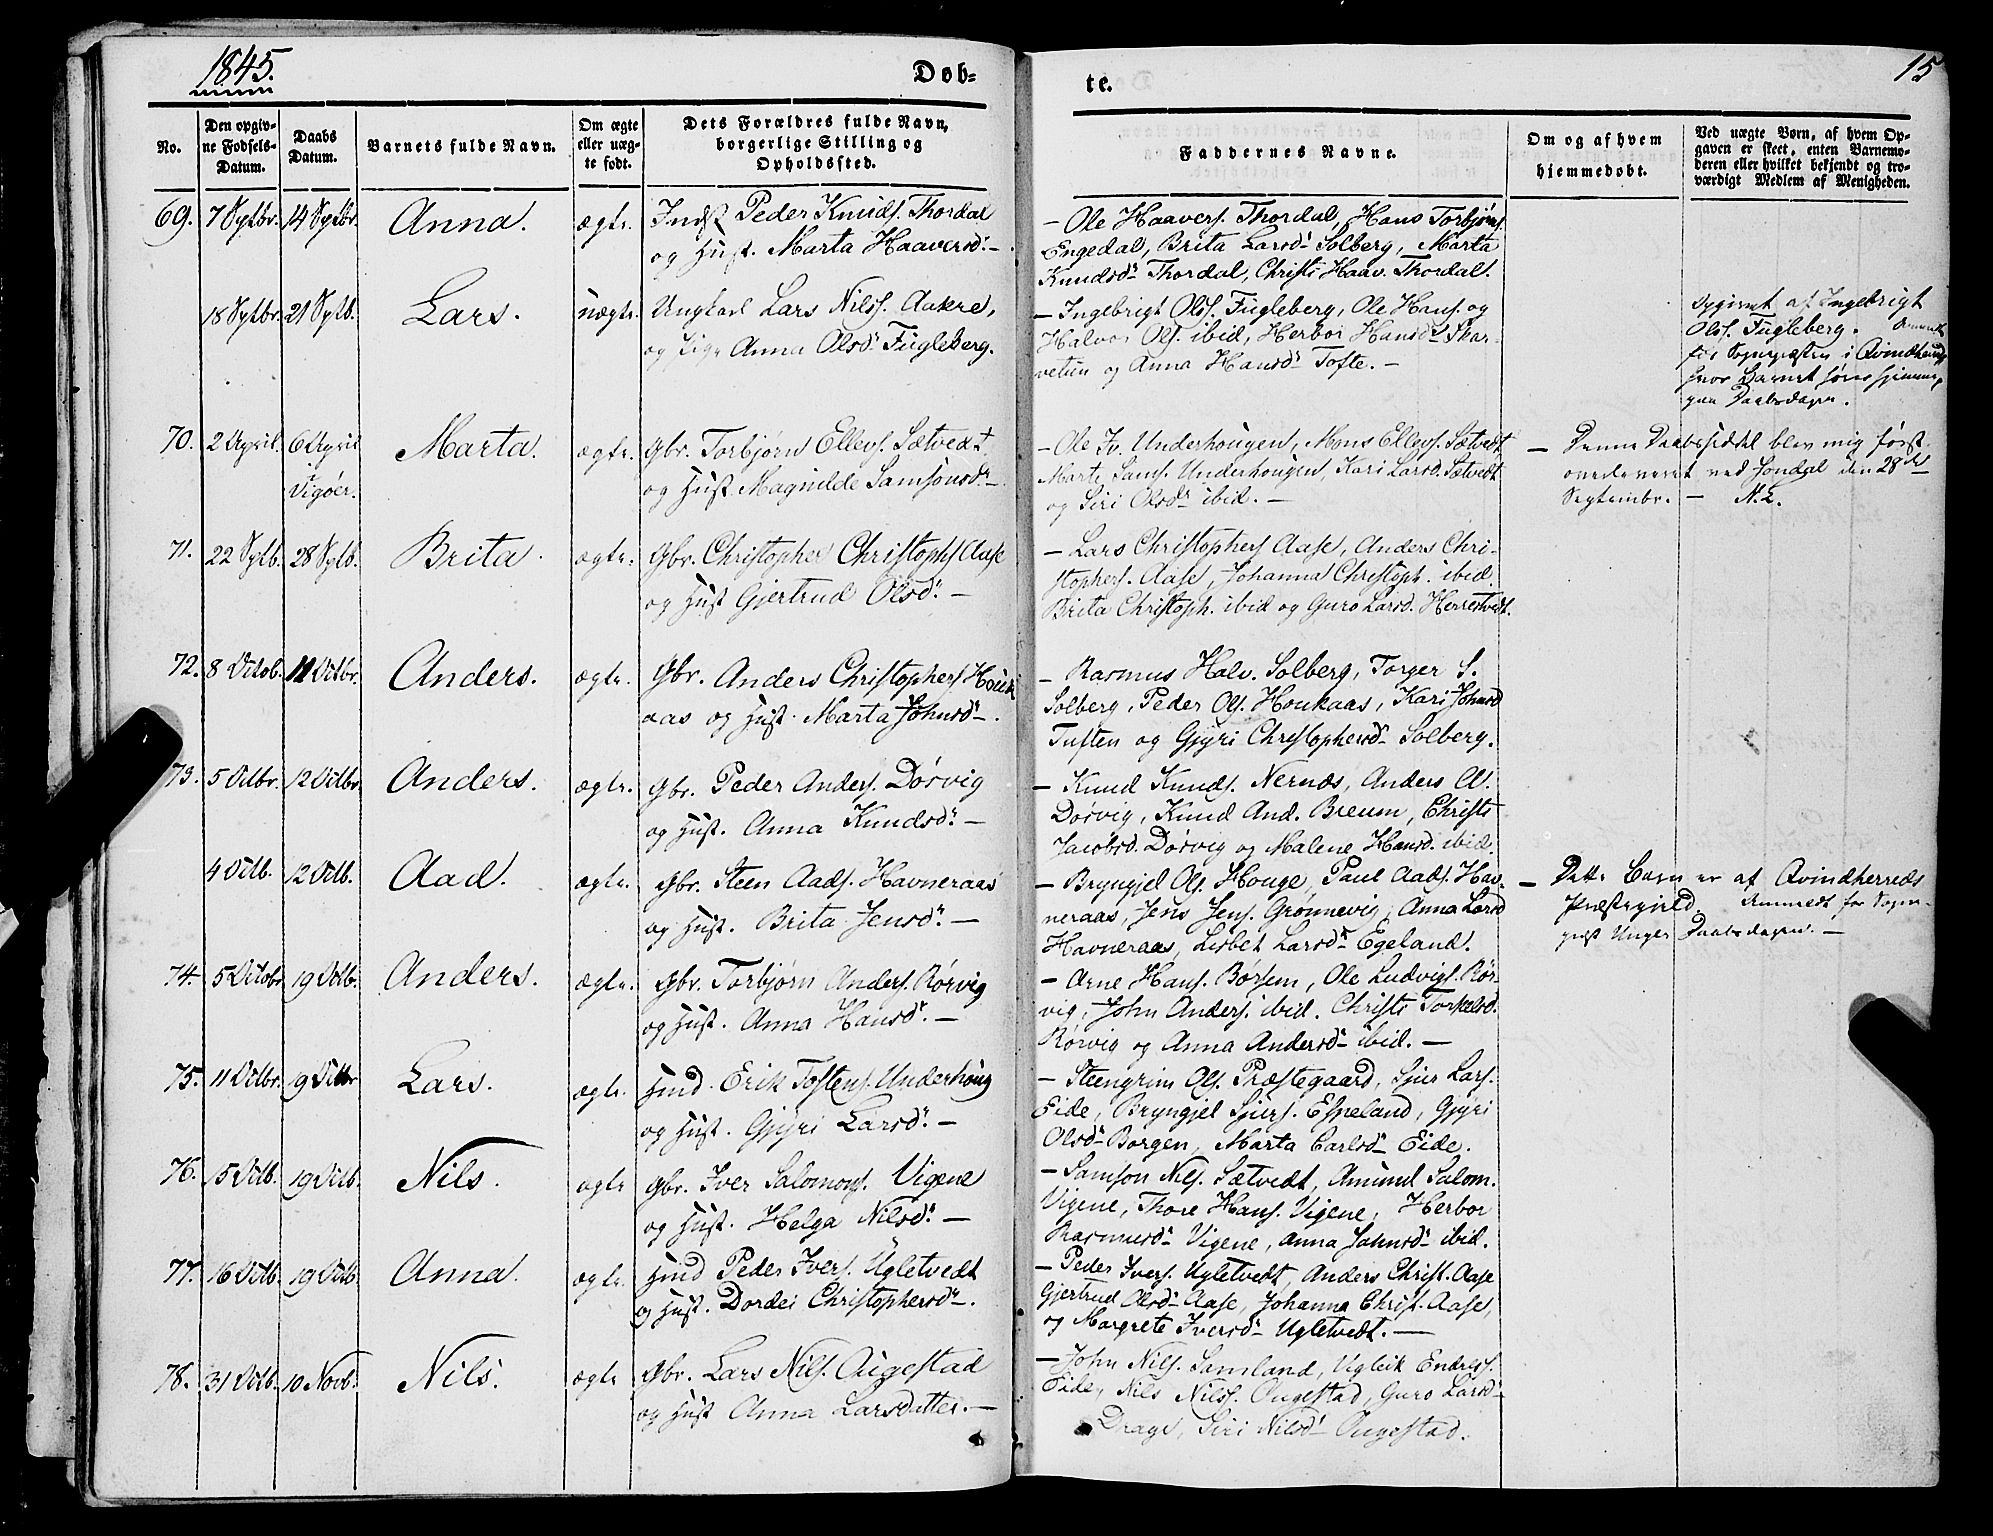 1845.
Døb=
te.
15
No.
Den opgiv=
ne Fødsels=
Datum.
Daabs
Datum.
Barnets fulde Navn.
Om ægte
eller uæg=
te født.
Dets Forældres fulde Navn,
borgerlige Stilling og
Opholdssted.
Faddernes Navne.
Om og af hvem
hjemmedøbt.
Ved uægte Børn, af hvem Op=
gaven er skeet, enten Barnemo=
deren eller hvilket bekjendt og tro=
værdigt Medlem af Menigheden.
69. 7 Septbr. 14 Septbr. Anna. ægte. Indst Peder Knuds. Thordal
og Hust. Marta Haaversd. —
— Ole Haavers. Thordal, Hans Torbjøns.
Engedal, Brita Larsd. Solberg, Marta
Knudsd. Thordal, Christi Haav. Thordal.
18 Septbr. 21 Septb. Lars. uægte. Ungkarl Lars Nilss. Aakre,
og Pige Anna Olsd. Fugleberg.
— Ingebrigt Olss. Fugleberg, Ole Hans. og
Halvor Ols. ibid, Herbor Hansd. Skar-
vetun og Anna Hansd. Tofte. —
Opgivet af Ingebrigt
Olss. Fugleberg. Anmeldt
for Sognepræsten i Qvindherred,
hvor Barnet hører hjemme,
paa Daabsdagen.
70. 2 April. 6 April Vigøer. Marta. ægte. Gbr. Torbjørn Ellevs. Sætvedt
og Hust Magnilde Samsonsd. —
— Ole Iv. Underhougen, Mons Ellevs. Sætvedt
Marte Sams. Underhougen, Kari Larsd. Sætvedt
og Siri Olsd. ibid. —
— Denne Daabsseddel blev mig først
overleveret ved Jondal den 28de
Septembr. — N.L.
71. 22 Septb. 28 Septb. Brita. ægte. Gbr. Christopher Christophs Aase
og Hust Gjertrud Olsd. —
— Lars Christophers Aase, Anders Chri-
stophers. Aase, Johanna Christoph. ibid.
Brita Christoph. ibid og Guro Larsd. Herrestvedt.
72. 8 Octob. 11 Octbr. Anders. ægte. Gbr. Anders Christophers Houk
aas og Hust. Marta Johnsd. —.
— Rasmus Halv. Solberg, Torger S.
Solberg, Peder Ols. Houkaas, Kari Johnsd
Tuften og Gjyri Christophersd. Solberg.
73. 5 Octbr. 12 Octbr Anders. ægte. Gbr. Peder Anders. Dørvig
og Hust. Anna Knudsd. —
— Knud Knuds. Nernæs, Anders A.
Dørvig, Knud And. Breum, Christi
Jacobsd. Dørvig og Malene Hansd. ibid.
4 Octb. 12 Octb. Aad. ægte. Gbr. Steen Aads. Havneraas
og Hust. Brita Jensd. —
— Bryngjel Ols. Houge, Paul Aads. Hav-
neraas, Jens Jens. Grønnevig, Anna Larsd
Havneraas, Lisbet Larsd. Egeland.
— Dette Barn er af Qvindherreds
Præstegjeld. Anmeldt for Sogne-
præst Unger Daabsdagen. —
74. 5 Octobr 19 Octb. Anders. ægte. Gbr. Torbjørn Anders. Rørvig
og Hust. Anna Hansd. —
— Arne Hans. Børsem, Ole Ludvigs. Rør-
vig, John Anders. ibid. Christi Torkelsd.
Rørvig og Anna Andersd. ibid. —
75. 11 Octbr. 19 Octbr Lars. ægte. Hmd. Erik Tostens. Underhoug
og Hust. Gjyri Larsd. —
— Steengrim Ols. Præstegaard, Sjur Lars.
Eide, Bryngjel Sjurs. Espeland, Gjyri
Olsd. Borgen, Marta Carlsd. Eide.
76. 15 Octb. 19 Octb. Nils. ægte Gbr. Iver Salomons. Vigene
og Hust. Helga Nilsd. —
— Samson Nils. Sætvedt, Amund Salom.
Vigene, Thore Hans. Vigene, Herbor
Rasmusd. Vigene, Anna Johnsd. ibid.
77. 16 Octb. 19 Octb Anna. ægte. Hmd Peder Ivers. Ugletvedt
og Hust. Dordei Christophersd.
— Peder Ivers. Ugletvedt, Anders Christ. Aase
Gjertrud Olsd. Aase, Johanna Christ. Aase,
og Margrete Iversd. Ugletvedt. —
78. 31 Octb. 10 Novb. Nils. ægte Gbr. Lars Nils. Ougestad
og Hust Anna Larsdatter. —
— John Nils. Samland, Ugleik Endress.
Eide, Nils Nilss. Ougestad, Guro Larsd.
Drage, Siri Nilsd. Ougestad.